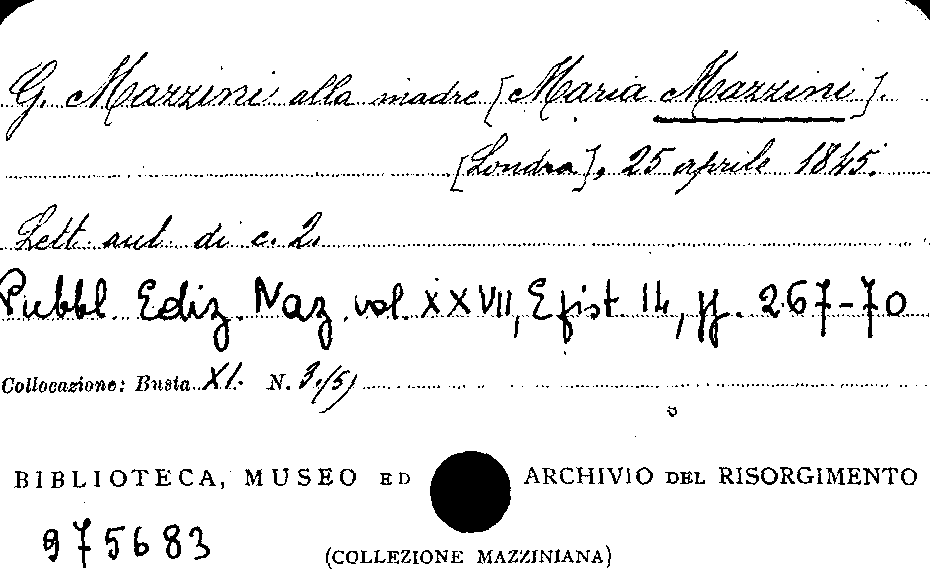 G. Mazzini alla madre [Maria Mazzini].
[Londra], 25 aprile 1845.
Lett. aut. di c. 2.
Pubbl. Ediz. Naz. vol. XXVII, Epist. 14, pp. 267-70
Collocazione: Busta XI. N. 3.(5)
BIBLIOTECA, MUSEO ED ARCHIVIO DEL RISORGIMENTO
975683
(COLLEZIONE MAZZINIANA)